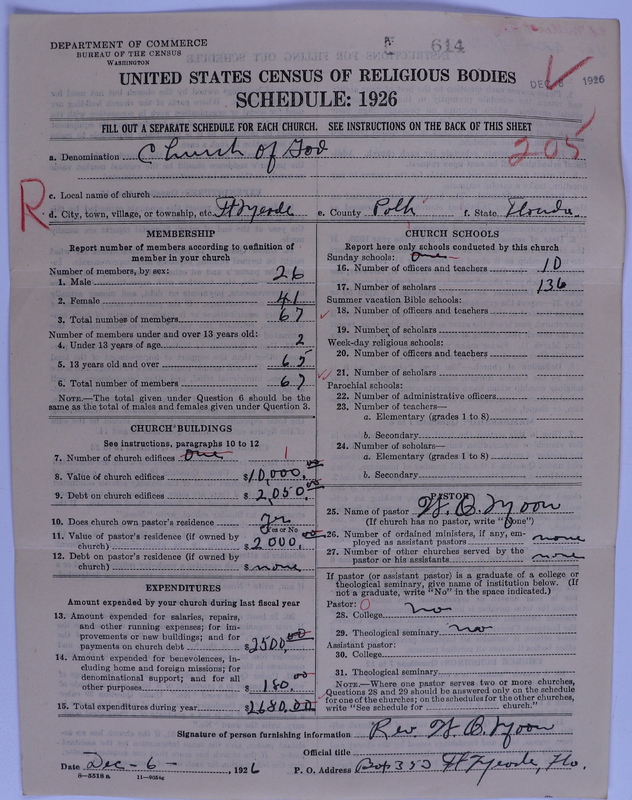 DEPARTMENT OF COMMERCE
BUREAU OF THE CENSUS
WASHINGTON
614
UNITED STATES CENSUS OF RELIGIOUS BODIES
DEC 8 1926
SCHEDULE: 1926
FILL OUT A SEPARATE SCHEDULE FOR EACH CHURCH. SEE INSTRUCTIONS ON THE BACK OF THIS SHEET
205
a. Denomination Church of God
c. Local name of church
R
d. City, town, village, or township, etc. Ft Meade e. County Polk f. State Florida
MEMBERSHIP
Report number of members according to definition of member in your church
Number of members, by sex:
1. Male 26
2. Female 41
3. Total number of members 67
Number of members under and over 13 years old:
4. Under 13 years of age 2
5. 13 years old and over 65
6. Total number of members 67
NOTE.—The total given under Question 6 should be the same as the total of males and females given under Question 3.
CHURCH BUILDINGS
See instructions, paragraphs 10 to 12
7. Number of church edifices one 1
8. Value of church edifices $10,000.00
9. Debt on church edifices $2,050.00
10. Does church own pastor's residence Yes
Yes or No
11. Value of pastor's residence (if owned by church) $2000.00
12. Debt on pastor's residence (if owned by church) $none
EXPENDITURES
Amount expended by your church during last fiscal year
13. Amount expended for salaries, repairs, and other running expenses; for improvements or new buildings; and for payments on church debt $2500.00
14. Amount expended for benevolences, including home and foreign missions; for denominational support; and for all other purposes $180.00
15. Total expenditures during year $2680.00
CHURCH SCHOOLS
Report here only schools conducted by this church
Sunday schools: one
16. Number of officers and teachers 10
17. Number of scholars 136
Summer vacation Bible schools:
18. Number of officers and teachers
19. Number of scholars
Week-day religious schools:
20. Number of officers and teachers
21. Number of scholars
Parochial schools:
22. Number of administrative officers
23. Number of teachers—
a. Elementary (grades 1 to 8)
b. Secondary
24. Number of scholars—
a. Elementary (grades 1 to 8)
b. Secondary
PASTOR
25. Name of pastor
(If church has no pastor, write "none")
26. Number of ordained ministers, if any, employed as assistant pastors none
27. Number of other churches served by the pastor or his assistants none
If pastor (or assistant pastor) is a graduate of a college or theological seminary, give name of institution below. (If not a graduate, write "No" in the space indicated.)
Pastor:
28. College no
29. Theological seminary no
Assistant pastor:
30. College
31. Theological seminary
NOTE.—Where one pastor serves two or more churches, Questions 28 and 29 should be answered only on the schedule for one of the churches; on the schedules for the other churches, write "See schedule for church."
Signature of person furnishing information Rev.
Official title
Date Dec-6-, 1926 P. O. Address Box 353 Ft Meade, Fla.
8-5518a 11-9054c